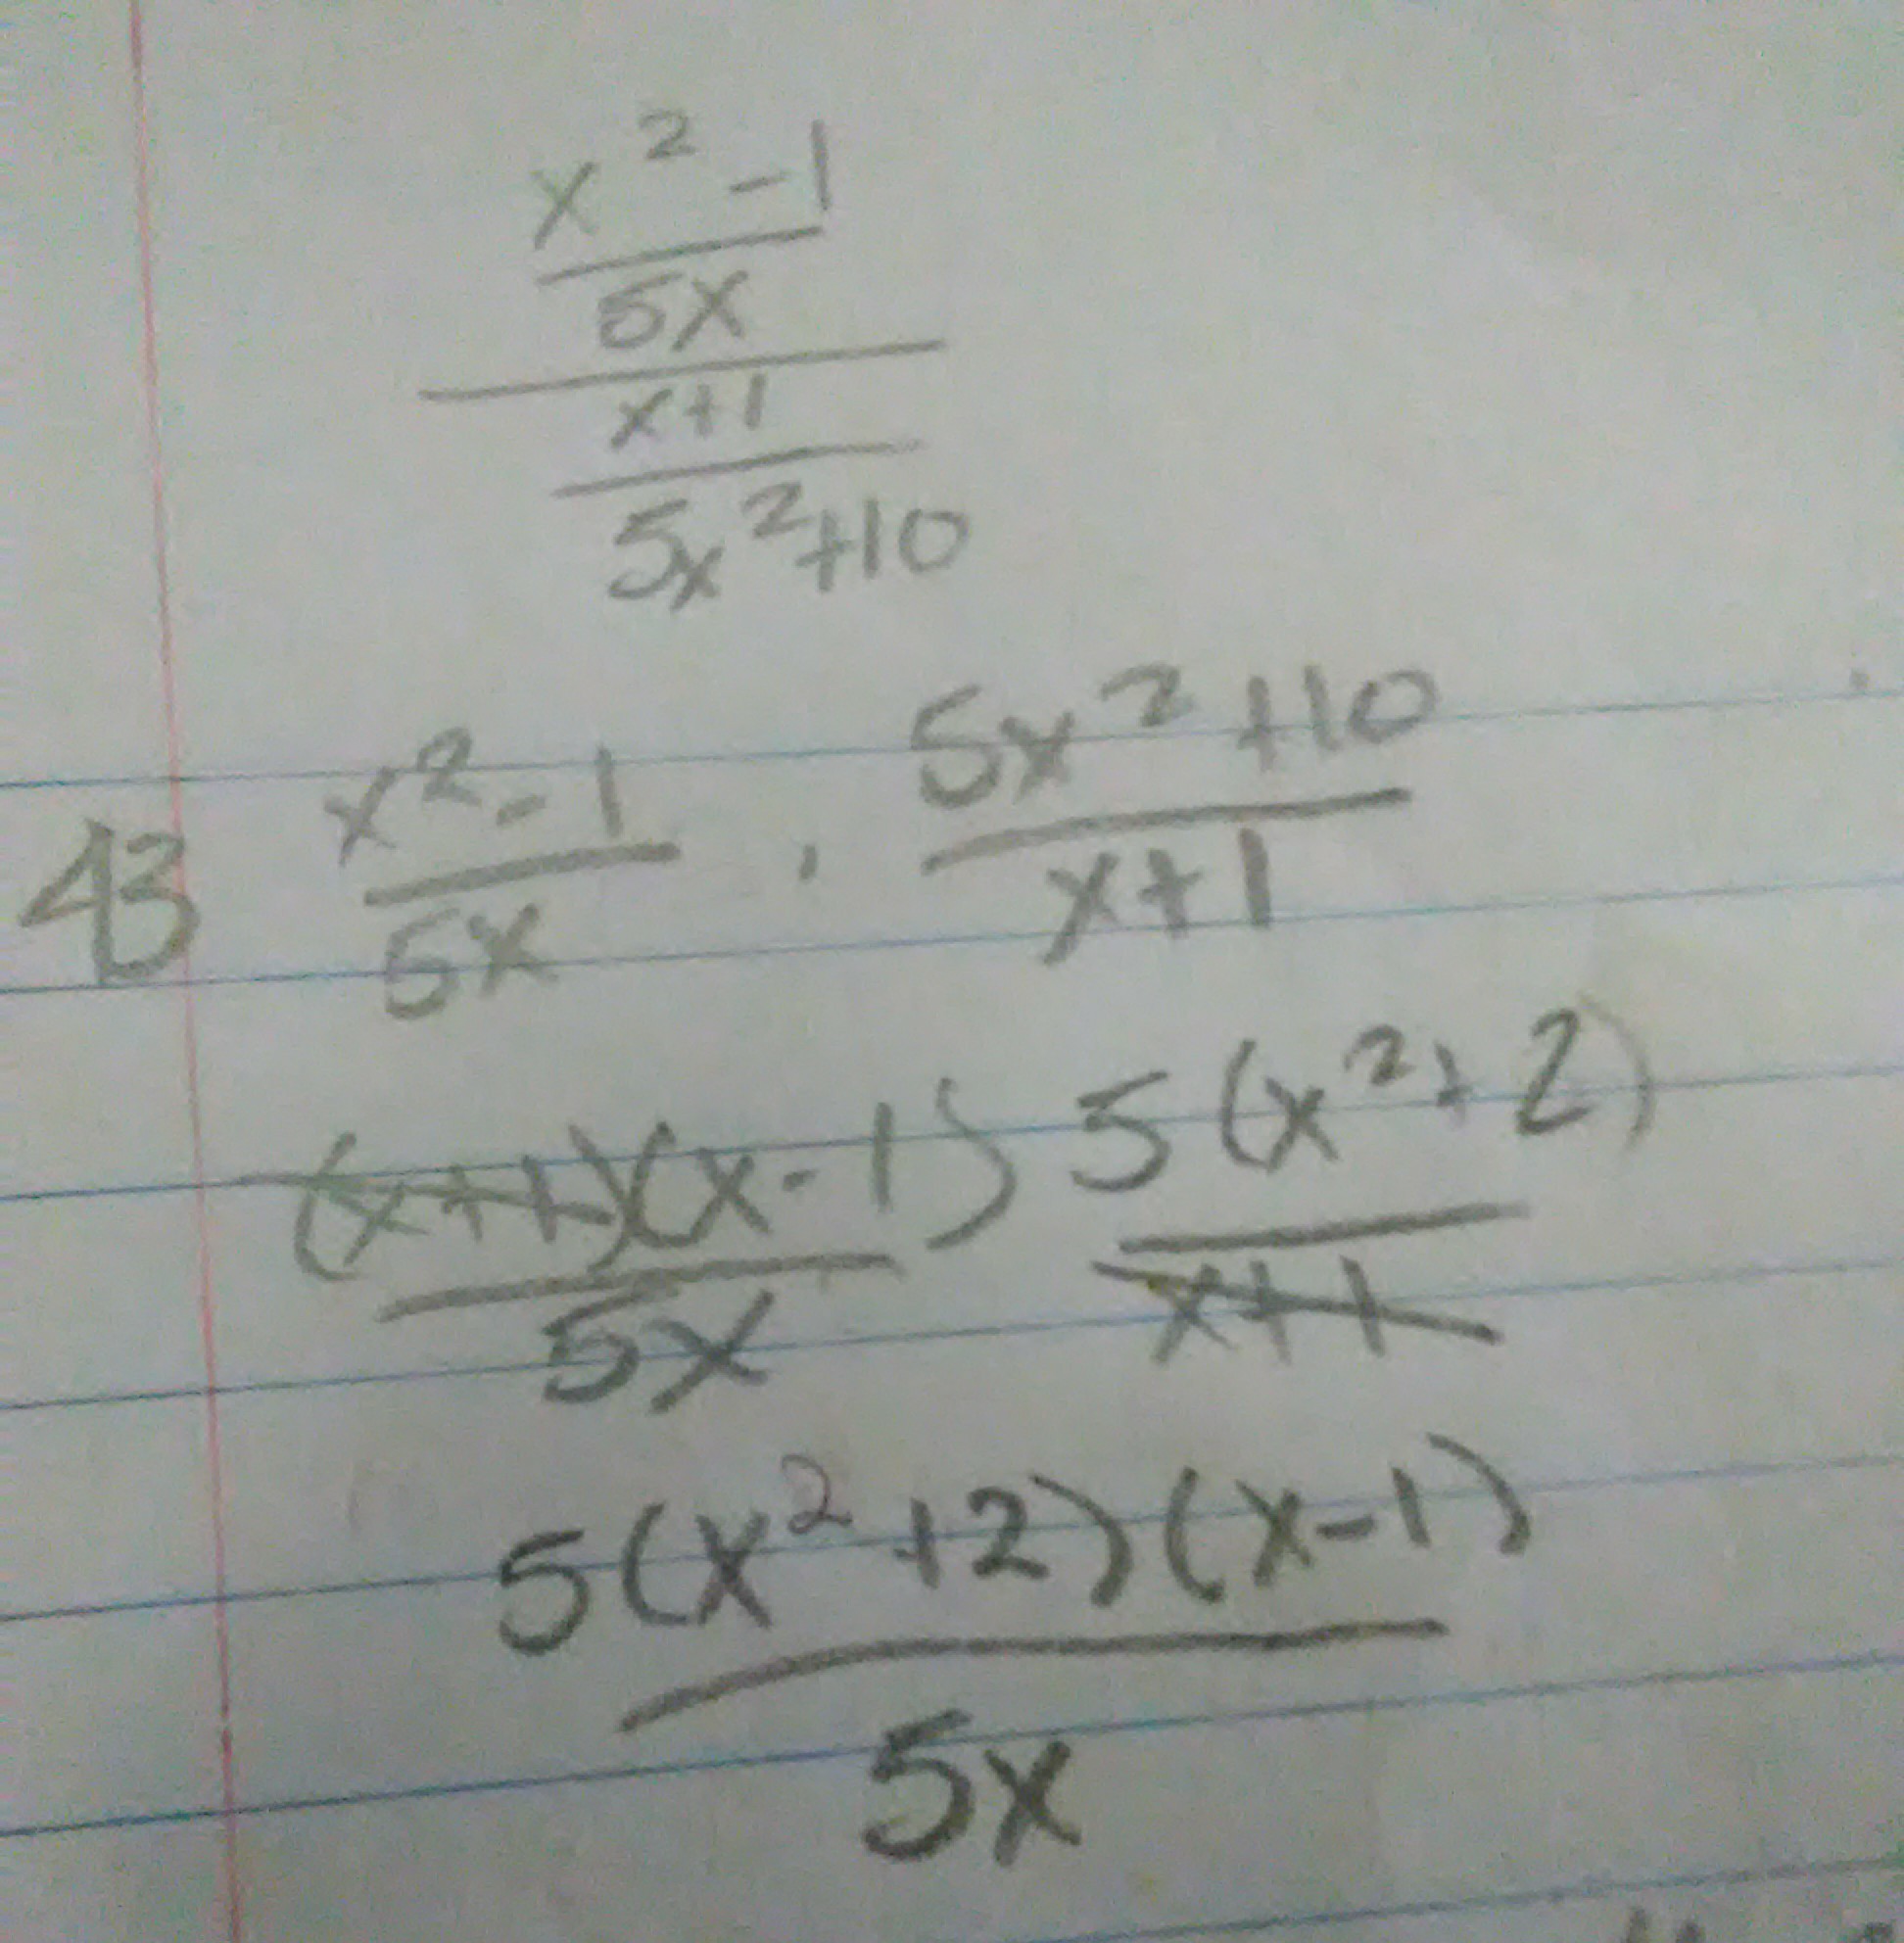 x² - 1
5x
x+1
5x²+10
43 x² - 1 · 5x² + 10
5x x+1
(x+1)(x-1) 5(x²+2)
5x x+1
5(x²+2)(x-1)
5x